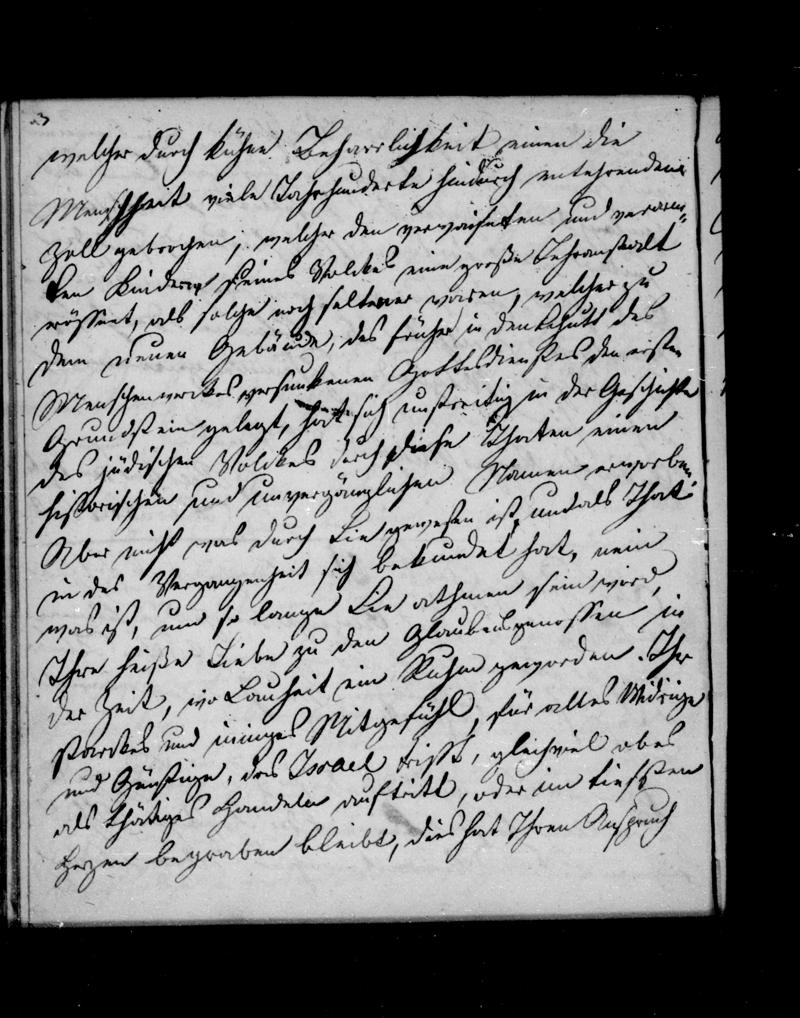 welcher durch kühne Beharrlichkeit einen die
Menschheit viele Jahrhunderte hindurch entehrenden
Zoll gebrochen; welcher den verwaisten und verarm-
ten Kindern seines Volckes eine große Lehranstalt
eröffnet, als solche noch seltener waren, welcher zu
dem neuen Gebäude, des früher in den Schutt des
Menschenwerkes versunkenen Gottesdienstes den ersten
Grundstein gelegt, hat sich unstreitig in der Geschichte
des jüdischen Volckes durch diese Thaten einen
historischen und unvergänglichen Namen erworben.
Aber nicht was durch Sie gewesen ist, und als That
in der Vergangenheit sich bekundet hat, nein
was ist, und so lange Sie athmen sein wird,
Ihre heiße Liebe zu den Glaubensgenossen in
der Zeit, wo Lauheit ein Ruhm geworden. Ihr
starckes und inniges Mitgefühl, für alles Widrige
und Günstige, das Israel trifft, gleichviel ob es
als thätiges Handeln auftritt, oder im tiefsten
Herzen begraben bleibt, dies hat Ihren Anspruch